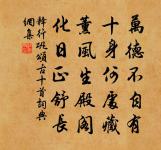 萬德不自有
十身何處藏
薰風生殿閣
化日正舒長
釋行珉頌古十首詞典
網集